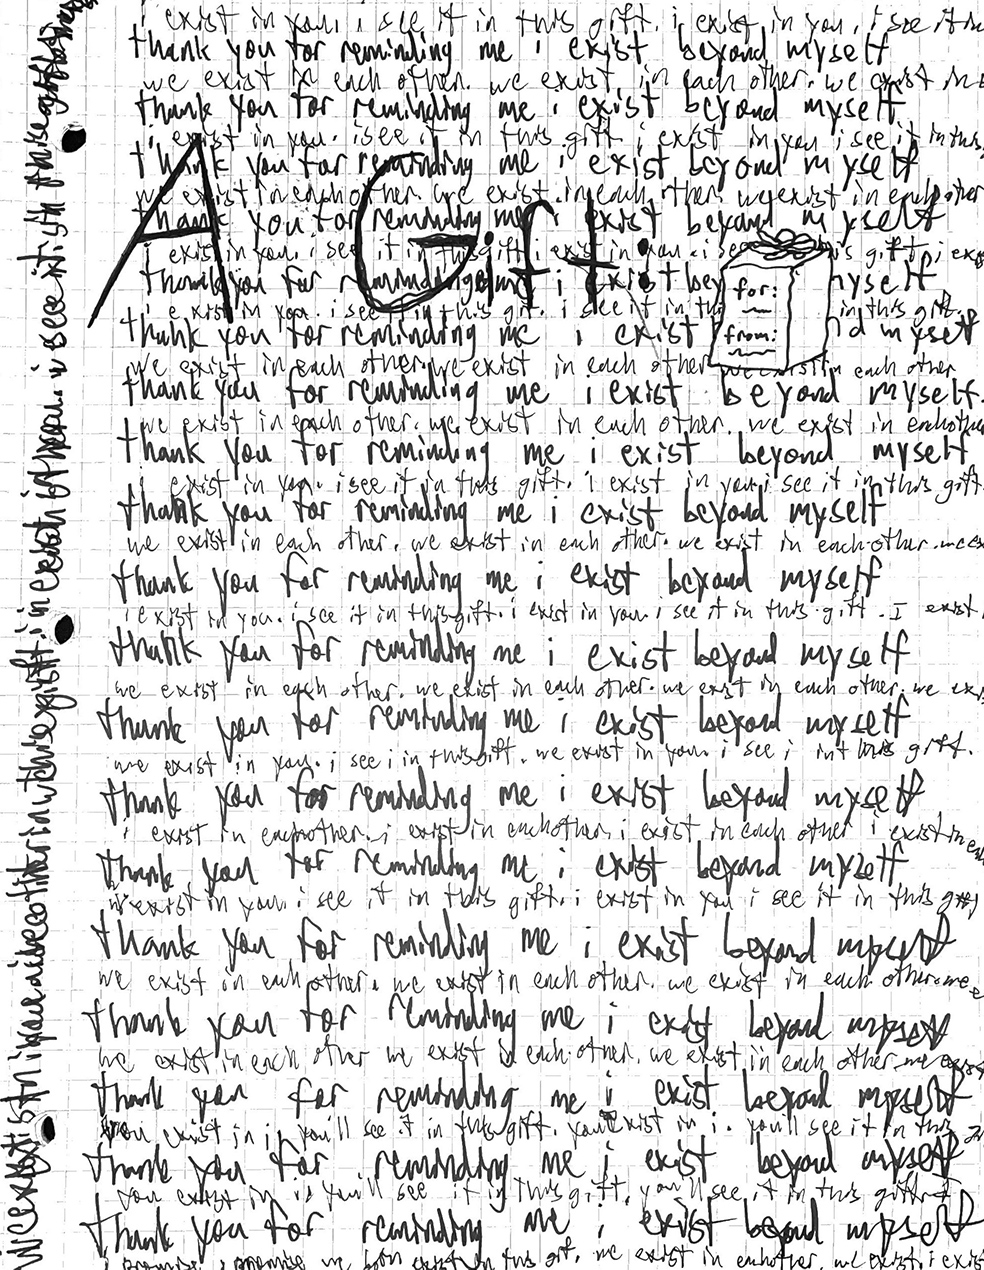 i exist in you. i see it in this gift. i exist in you, i see it
thank you for reminding me i exist beyond myself
we exist in each other. we exist in each other. we exist in
thank you for reminding me i exist beyond myself
i exist in you. i see it in this gift i exist in you i see it in this
thank you for reminding me i exist beyond myself
we exist in each other. we exist in each other we exist in each other
thank you for reminding me exist beyond myself
i exist in you. i see it in this gift i exist in you. i see this gift. i
A Gift:
thank you for reminding me i exist beyond myself
for:
i exist in you. i see it in this gift. i see it in in this gift.
from:
thank you for reminding me i exist myself
we exist in each other. we exist in each other we exist in each other
thank you for reminding me i exist beyond myself.
we exist in each other. we exist in each other. we exist in each other
thank you for reminding me i exist beyond myself
i exist in you. i see it in this gift. i exist in you i see it in this gift.
thank you for reminding me i exist beyond myself
we exist in each other. we exist in each other. we exist in each other.
thank you for reminding me i exist beyond myself
i exist in you. i see it in this gift. i exist in you. i see it in this gift. I exist
thank you for reminding me i exist beyond myself
we exist in each other. we exist in each other. we exist in each other. we
thank you for reminding me i exist beyond myself
we exist in you. i see i in this gift. we exist in you. i see i in this gift.
thank you for reminding me i exist beyond myself
i exist in each other. i exist in each other. i exist in each other i exist in
thank you for reminding me i exist beyond myself
exist in you. i see it in this gift. i exist in you i see it in this
thank you for reminding me i exist beyond myself
we exist in each other. we exist in each other. we exist in each other.
thank you for reminding me i exist beyond myself
we exist in each other we exist in each other. we exist in each other we
thank you for reminding me i exist beyond myself
you exist in i. you'll see it in this gift. exist in i. you'll see it in this
thank you for reminding me i exist beyond myself
you exist in i you'll see it in this gift. you'll see it in this
thank you for reminding me i exist beyond myself
i promise we exist in this gift. we exist in each other. we exist. i